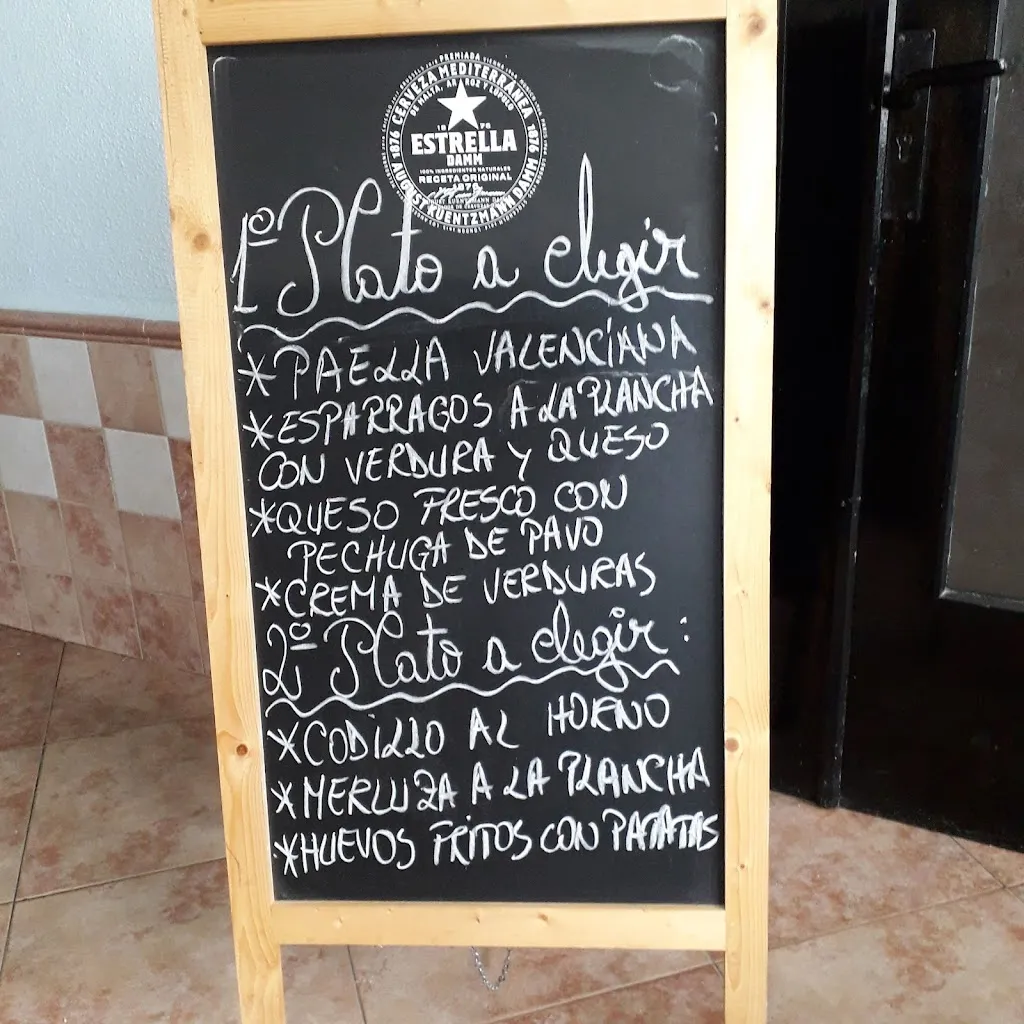 PREMIADA
CERVEZA MEDITERRÁNEA
DE MALTA, ARROZ Y LÚPULO
1876
1876
1876
ESTRELLA
DAMM
100% INGREDIENTES NATURALES
RECETA ORIGINAL
1876
AUGUST KUENTZMANN DAMM
1º Plato a elegir
*PAELLA VALENCIANA
*ESPARRAGOS A LA PLANCHA
CON VERDURA Y QUESO
*QUESO FRESCO CON
PECHUGA DE PAVO
*CREMA DE VERDURAS
2º Plato a elegir:
*CODILLO AL HORNO
*MERLUZA A LA PLANCHA
*HUEVOS FRITOS CON PATATAS